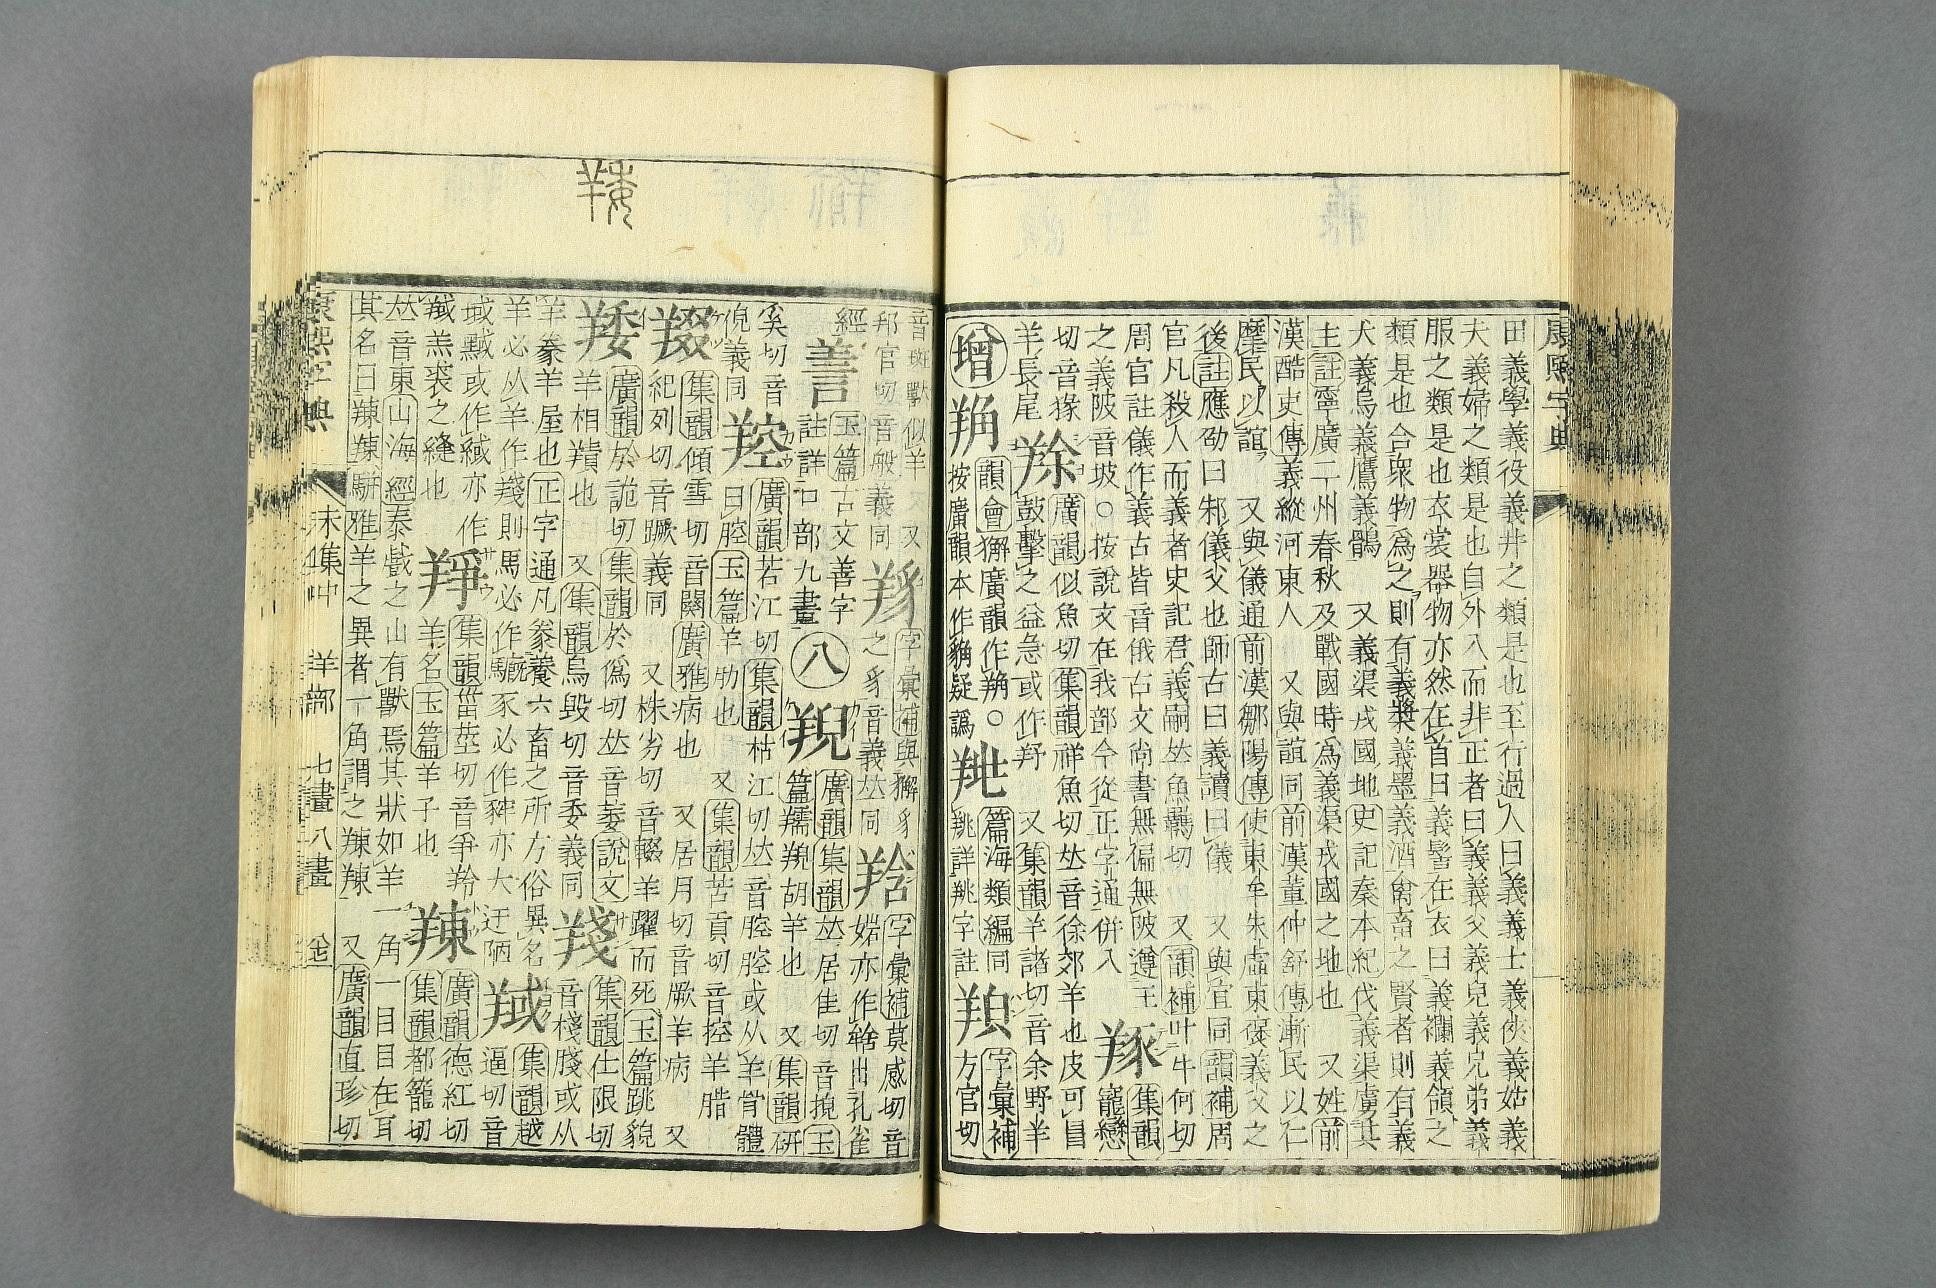 康熙字典
田義學義役義井之類是也至行過人曰義義士義俠義姑義
犬義婦之類是也自外入而非正者曰義義父義兒義兄弟義
服之類是也衣裳器物亦然在首曰義髻在衣曰義襴義領之
類是也合衆物爲之則有義漿義墨義酒禽畜之賢者則有義
犬義烏義鷹義鶻 又義渠戎國地史記秦本紀伐義渠虜其
王註寧廣二州春秋及戰國時爲義渠戎國之地也 又姓前
漢酷吏傳義縱河東人 又與誼同前漢董仲舒傳漸民以仁
摩民以誼 又與儀通前漢鄒陽傳使東牟朱虛東襃義父之
後註應劭曰邾儀父也師古曰義讀曰儀 又與宜同韻補周
官凡殺人而義者史記君義嗣𠀤魚羈切 又韻補叶牛何切
周官註儀作義古皆音俄古文尚書無偏無陂遵王
之義陂音坡○按說文在我部今從正字通併入 豥集韻
切音㺄 廣韻似魚切集韻祥魚切𠀤音徐郊羊也皮可冒
羊長尾 鼓擊之益急或作羜 又集韻羊諸切音余野羊
增 韻會獬廣韻作䍨○ 篇海類編同 字彙補
按廣韻本作䝂疑譌 䍮羊字註 方官切
音斑獸似羊 又 字彙補與獬豸 字彙補莫感切音
邦官切音般義同 之豸音義𠀤同 始亦作𦎦出孔雀
經 善 玉篇古文善字 廣韻集韻𠀤居隹切音規玉
註詳口部九畫 八 羪 篇羺䍲胡羊也 又集韻硏
奚切音 羫 廣韻若江切集韻枯江切𠀤音腔腔或从羊骨體
倪義同 曰腔玉篇羊肋也 又集韻苦貢切音控羊腊
羀 集韻傾雪切音闋廣雅病也 又居月切音厥羊病 又
紀列切音蹶義同 又株劣切音輟羊躍而死玉篇跳貌
羊委 廣韻於詭切集韻於僞切𠀤音萎說文 羊戔 集韻仕限切
羊相䍴也 又集韻烏毀切音委義同 音棧牋或从
羊豢羊屋也正字通凡豢養六畜之所方俗異名 羊或 集韻越
羊必从羊作羬則馬必作驖豕必作豣亦大迂陋 逼切音
域黬或作緎亦作 羊爭 集韻甾莖切音爭羚 羊東 廣韻德紅切
羬羔裘之縫也 羊名玉篇羊子也 集韻都籠切
𠀤音東山海經泰戲之山有獸焉其狀如羊一角一目目在耳
其名曰䍶䍶騈雅羊之異者一角謂之䍶䍶 又廣韻直珍切
康熙字典 未集中 羊部 七畫八畫